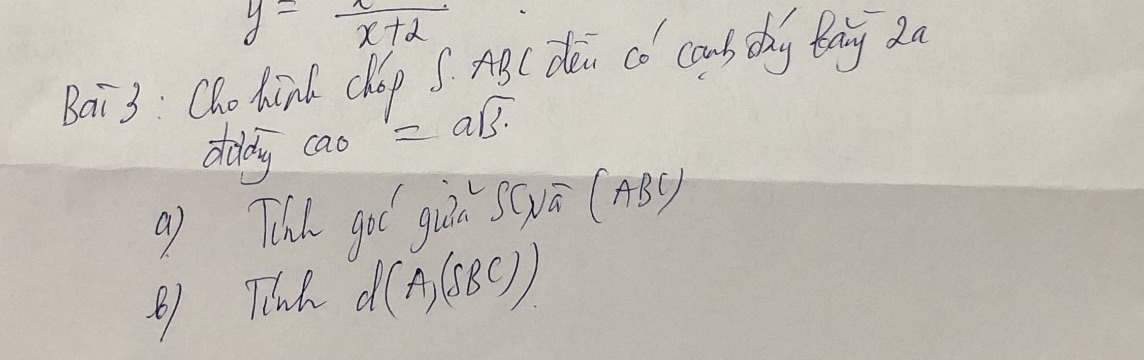 y = x+2
Bài 3: Cho hình chóp S.ABC đều có cạnh đáy bằng 2a
đường cao = a√3.
a) Tính góc giữa SC và (ABC)
b) Tính d(A,(SBC))